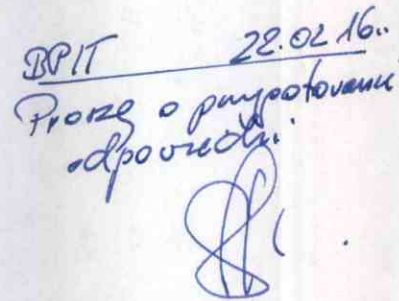 BPIT 22.02.16..
Proszę o przygotowanie
odpowiedzi.